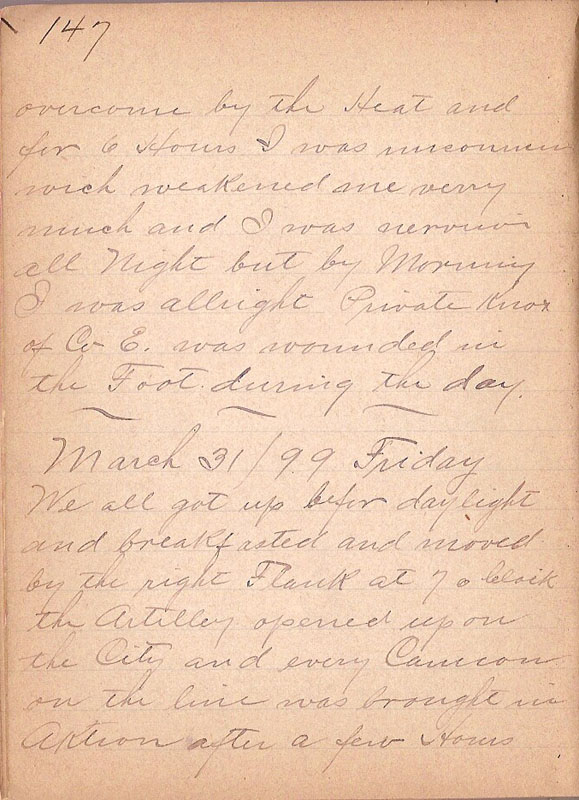 147
overcome by the Heat and
for 6 Hours I was unconcien
wich weakened me verry
much and I was nervious
all Night but by Morning
I was allright Private Knox
of Co E. was wounded in
the Foot during the day.
March 31/99 Friday
We all got up befor daylight
and breakfasted and moved
by the right Flank at 7 o clock
the Artilley opened upon
the City and every Cannon
on the line was brought in
Aktion after a few Hours